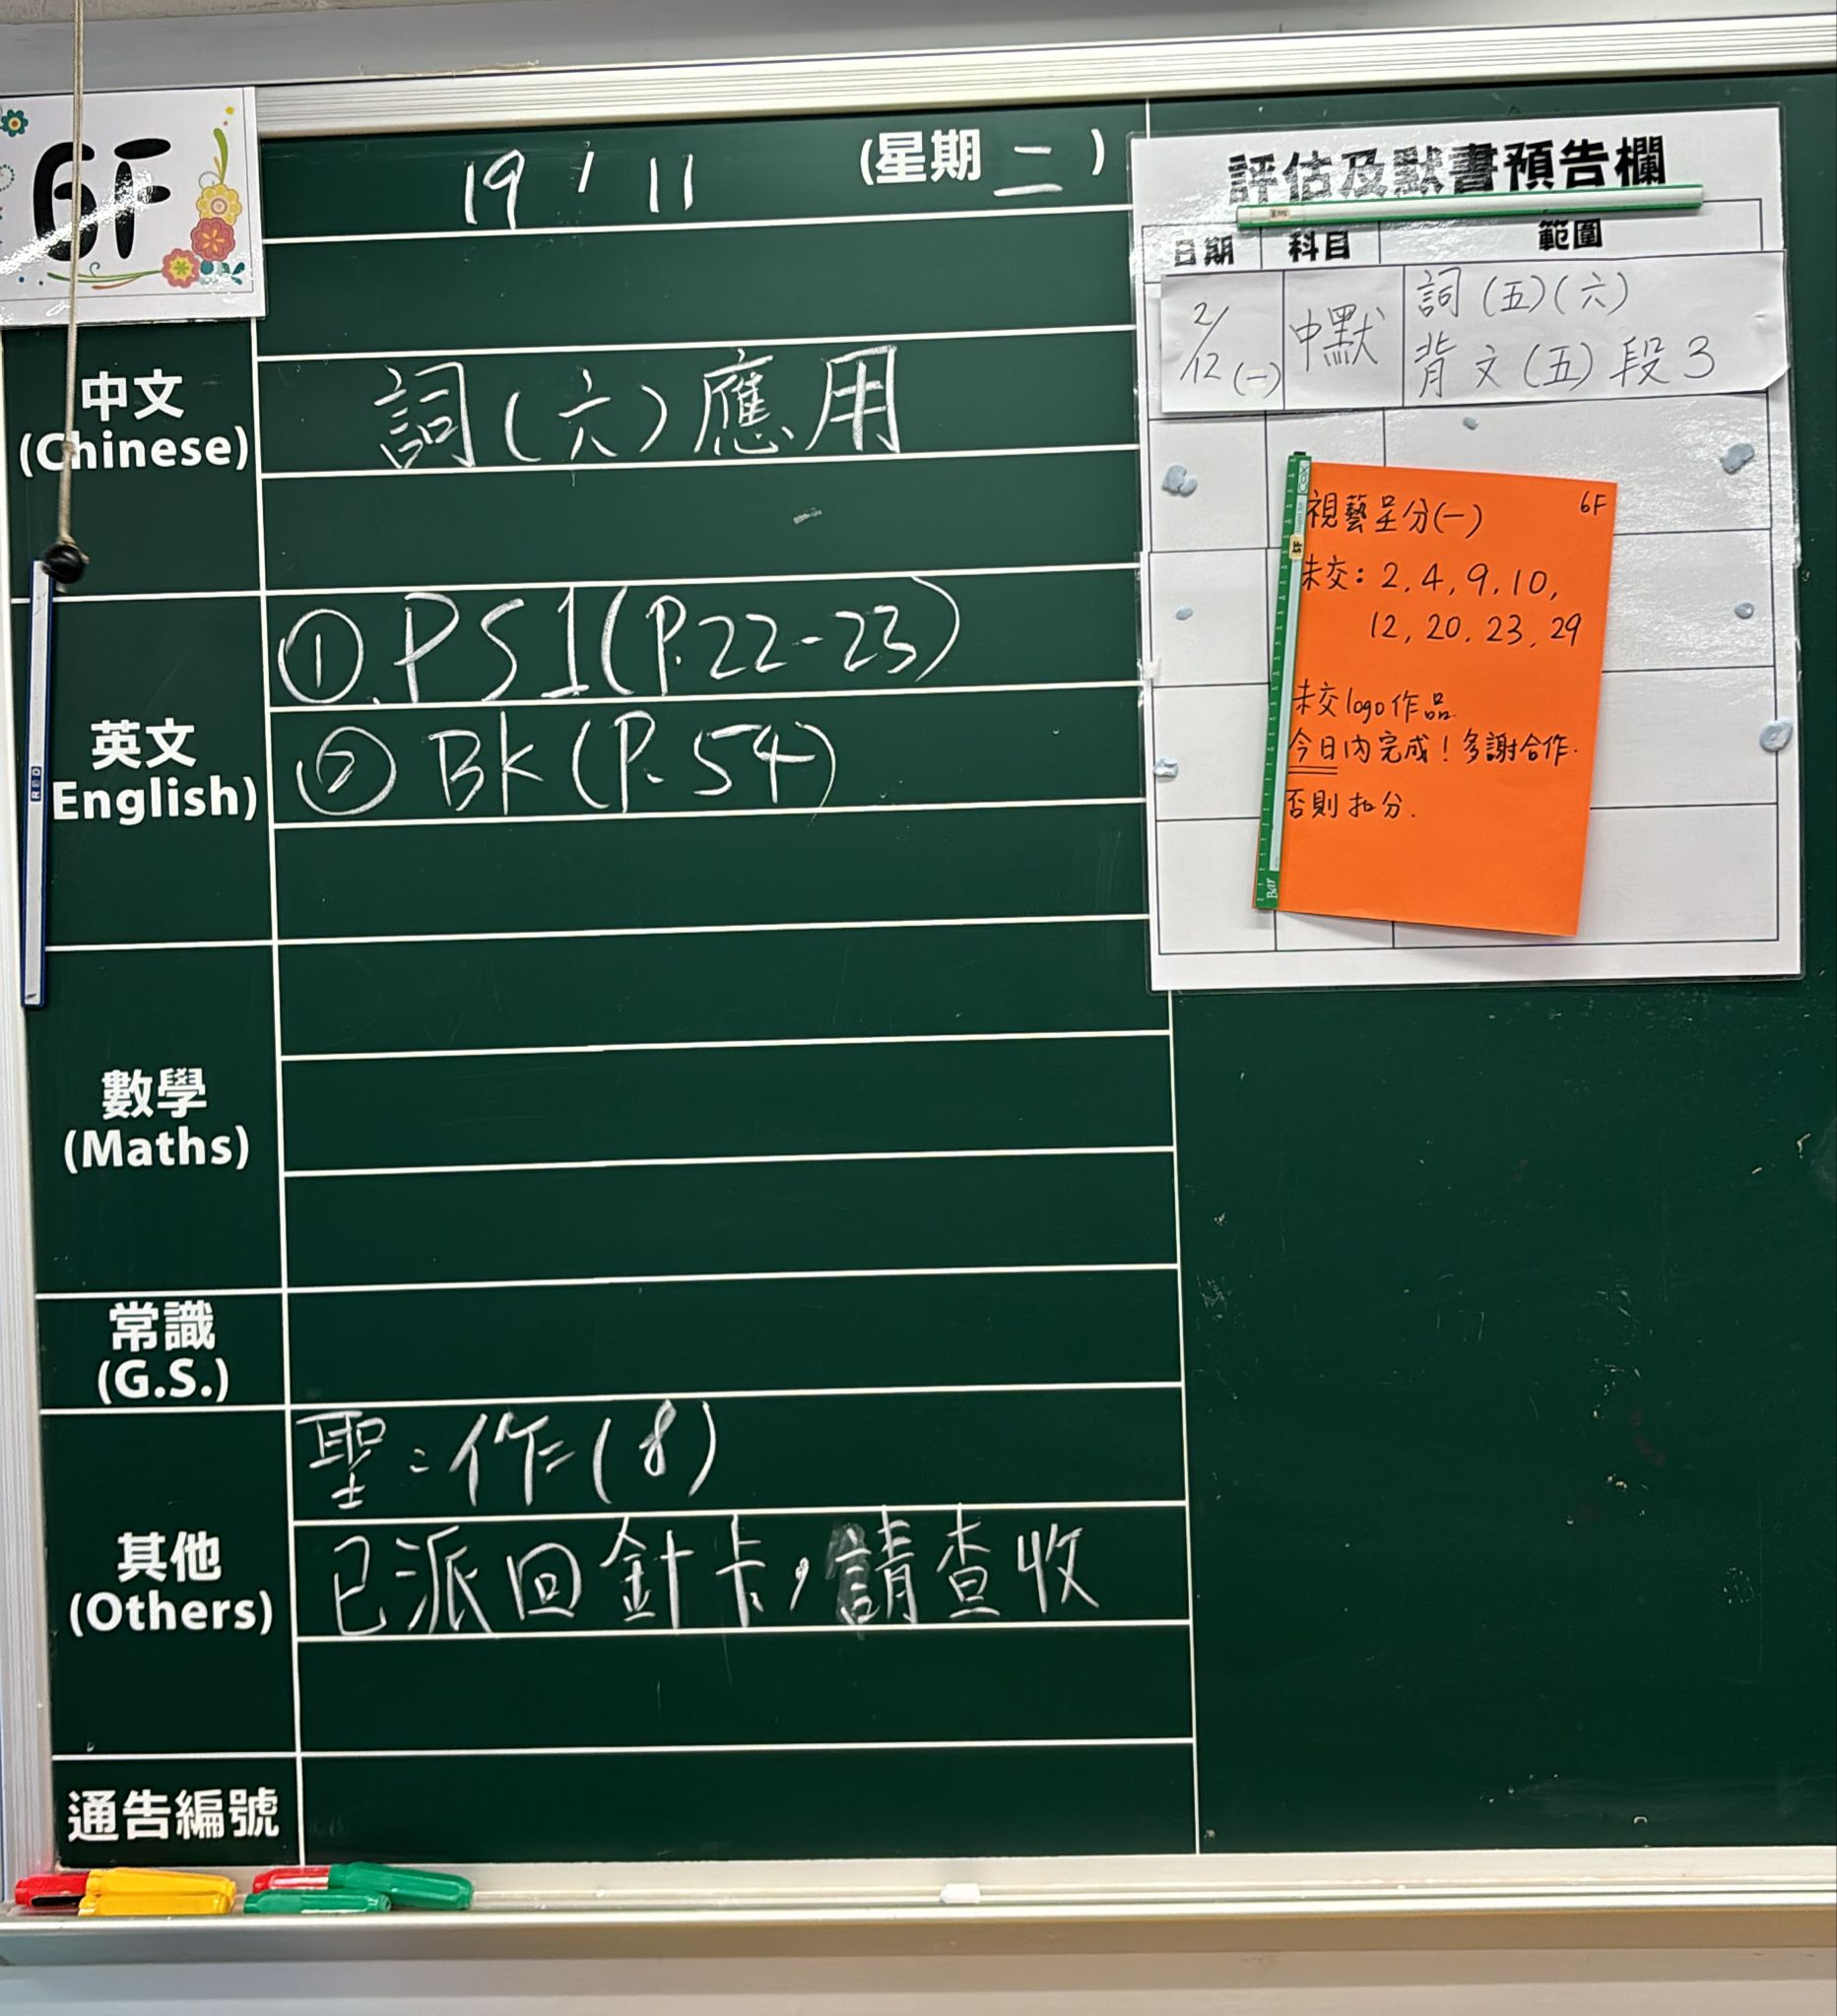 6F
19 / 11 (星期二)
中文
(Chinese)
詞(六)應用
英文
(English)
①.PS1(P.22-23)
② BK(P.54)
數學
(Maths)
常識
(G.S.)
其他
(Others)
聖:作(8)
已派回針卡,請查收
通告編號
評估及默書預告欄
日期 科目 範圍
2/12(一) 中默 詞(五)(六)
背文(五)段3
視藝呈分(一) 6F
未交:2,4,9,10,
12,20,23,29
未交logo作品
今日內完成!多謝合作.
否則扣分.
RED
Bar